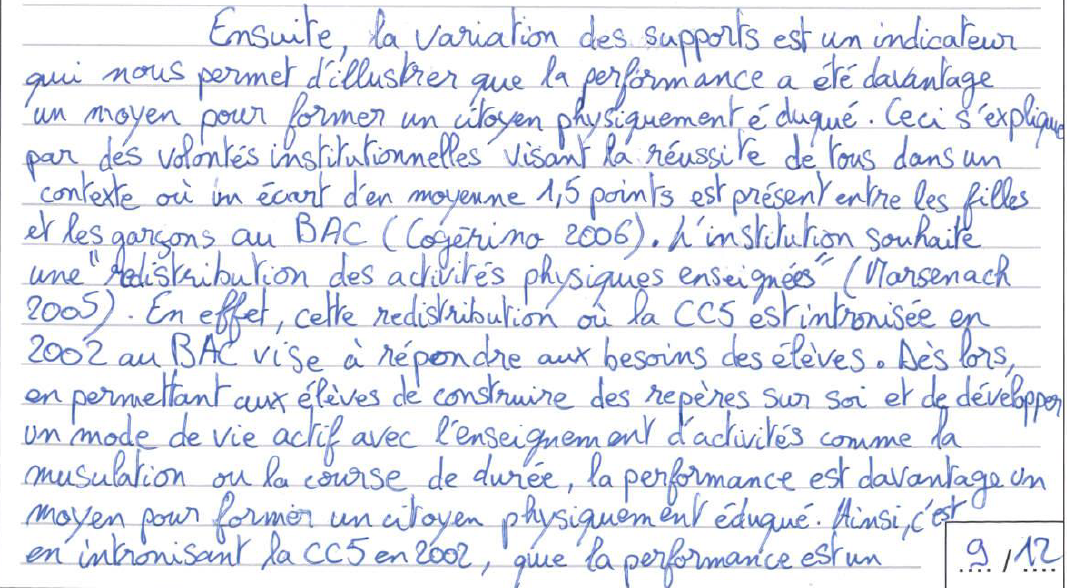 Ensuite, la variation des supports est un indicateur
qui nous permet d'illustrer que la performance a été davantage
un moyen pour former un citoyen physiquement éduqué. Ceci s'explique
par des volontés institutionnelles visant la réussite de tous dans un
contexte où un écart d'en moyenne 1,5 points est présent entre les filles
et les garçons au BAC (Cogérino 2006). L'institution souhaite
une "redistribution des activités physiques enseignées" (Marsenach
2005). En effet, cette redistribution où la CC5 est intronisée en
2002 au BAC vise à répondre aux besoins des élèves. Dès lors,
en permettant aux élèves de construire des repères sur soi et de développer
un mode de vie actif avec l'enseignement d'activités comme la
musulation ou la course de durée, la performance est davantage un
moyen pour former un citoyen physiquement éduqué. Ainsi, c'est
en intronisant la CC5 en 2002, que la performance est un
9 / 12